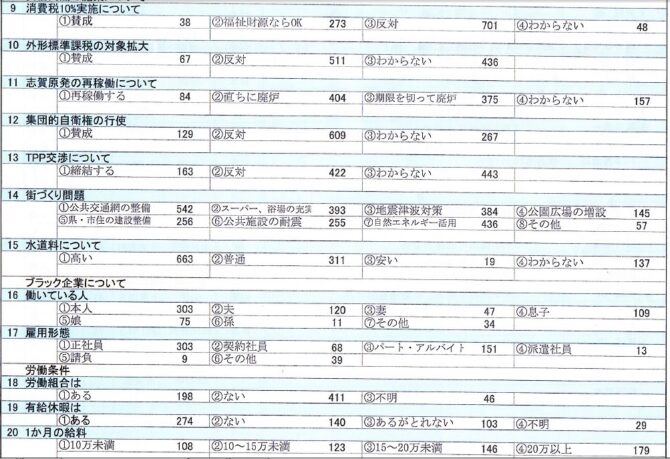 9 消費税10%実施について
①賛成 38 ②福祉財源ならOK 273 ③反対 701 ④わからない 48
10 外形標準課税の対象拡大
①賛成 67 ②反対 511 ③わからない 436
11 志賀原発の再稼働について
①再稼働する 84 ②直ちに廃炉 404 ③期限を切って廃炉 375 ④わからない 157
12 集団的自衛権の行使
①賛成 129 ②反対 609 ③わからない 267
13 TPP交渉について
①締結する 163 ②反対 422 ③わからない 443
14 街づくり問題
①公共交通網の整備 542 ②スーパー、浴場の充実 393 ③地震津波対策 384 ④公園広場の増設 145
⑤県・市住の建設整備 256 ⑥公共施設の耐震 255 ⑦自然エネルギー活用 436 ⑧その他 57
15 水道料について
①高い 663 ②普通 311 ③安い 19 ④わからない 137
ブラック企業について
16 働いている人
①本人 303 ②夫 120 ③妻 47 ④息子 109
⑤娘 75 ⑥孫 11 ⑦その他 34
17 雇用形態
①正社員 303 ②契約社員 68 ③パート・アルバイト 151 ④派遣社員 13
⑤請負 9 ⑥その他 39
労働条件
18 労働組合は
①ある 198 ②ない 411 ③不明 46
19 有給休暇は
①ある 274 ②ない 140 ③あるがとれない 103 ④不明 29
20 1か月の給料
①10万未満 108 ②10～15万未満 123 ③15～20万未満 146 ④20万以上 179